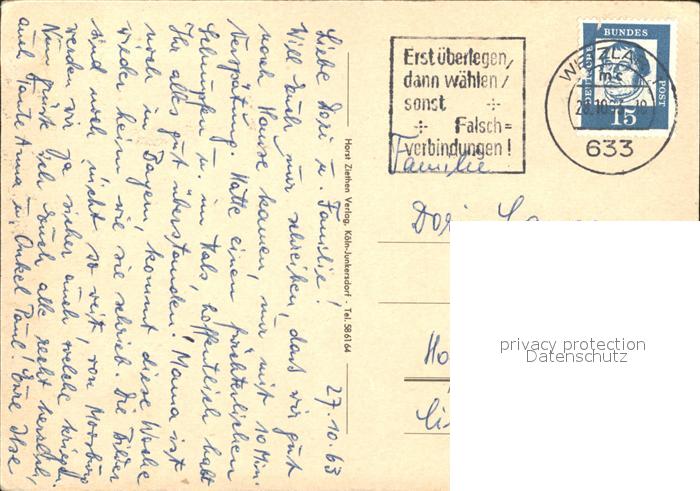 27.10.63
Liebe Dori u. Familie!
Will Euch nur schreiben, daß wir gut
nach Hause kamen, nur mit 10 Min.
Verspätung. Hatte einen fürchterlichen
Schnupfen u. im Hals, hoffentlich habt
Ihr alles gut überstanden! Mama ist
noch in Bayern, kommt diese Woche
wieder heim wie sie schrieb. Die Bilder
sind noch nicht so weit, von Moosburg
werden wir ja sicher auch welche kriegen.
Nun grüße ich Euch alle recht herzlich,
auch Tante Anna u. Onkel Paul! Eure Ilse
Horst Ziethen Verlag, Köln-Junkersdorf - Tel. 58 61 64
Erst überlegen,
dann wählen/
sonst
Falsch=
verbindungen!
Familie
Dori
DEUTSCHE BUNDESPOST
15
WETZLAR
633
privacy protection
Datenschutz